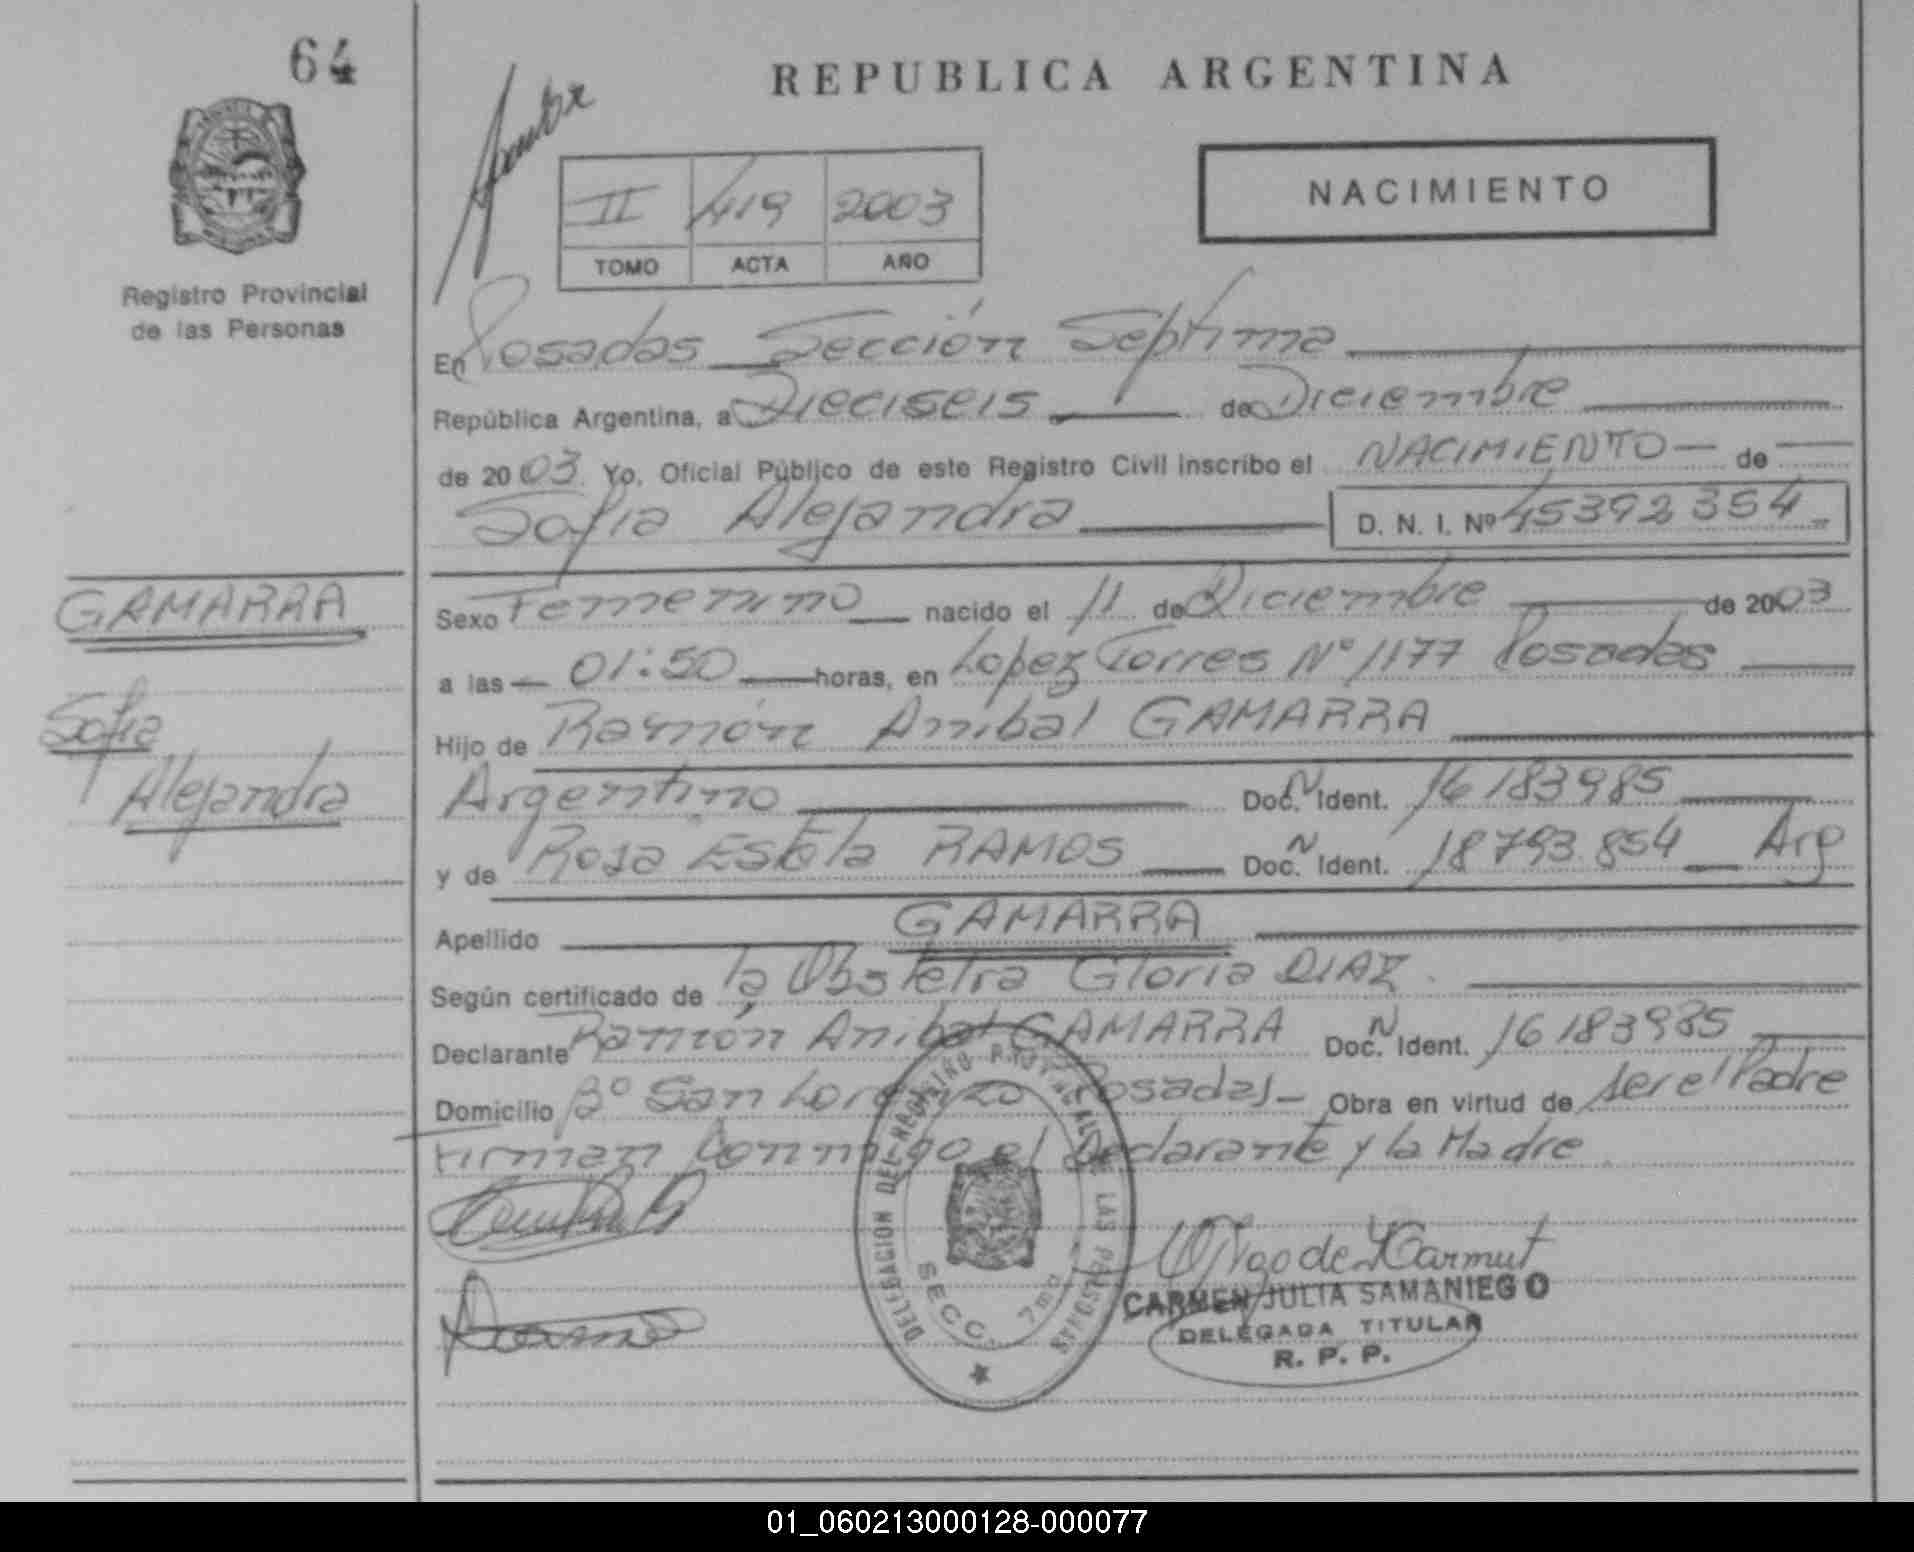 64
REPUBLICA ARGENTINA
NACIMIENTO
II 419 2003
TOMO ACTA AÑO
Registro Provincial
de las Personas
En Posadas Sección Septima
República Argentina, a Dieciseis de Diciembre
de 2003. Yo, Oficial Público de este Registro Civil inscribo el NACIMIENTO de
Sofia Alejandra D. N. I. Nº 45392354
GAMARRA
Sofia
Alejandra
Sexo Femenino nacido el 11 de Diciembre de 2003
a las 01:50 horas, en Lopez Torres Nº 1177 Posadas
Hijo de Ramón Anibal GAMARRA
Argentino Doc. N Ident. 16183985
y de Rosa Estela RAMOS Doc. N Ident. 18793.854 Arg
Apellido GAMARRA
Según certificado de la Obstetra Gloria DIAZ.
Declarante Ramón Anibal GAMARRA Doc. N Ident. 16183985
Domicilio Bº San Lorenzo Posadas Obra en virtud de ser el Padre
Firman Conmigo el Declarante y la Madre
DELEGACION DEL REGISTRO PROVINCIAL DE LAS PERSONAS
SECC. 7ma
CARMEN JULIA SAMANIEGO
DELEGADA TITULAR
R. P. P.
01_060213000128-000077